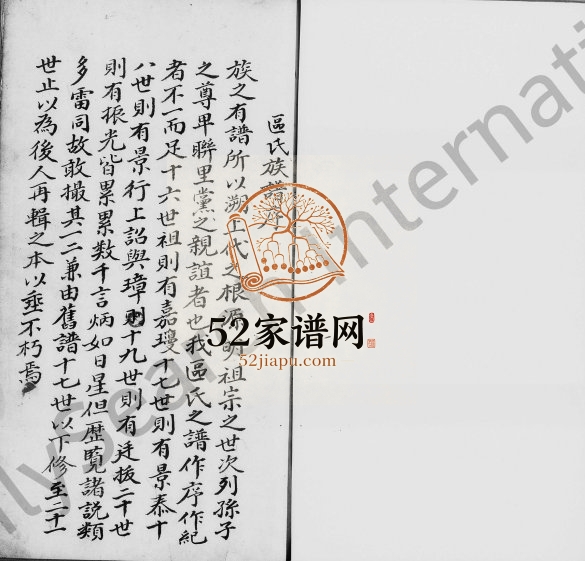 區氏族譜序
族之有譜所以溯上代之根源明祖宗之世次列孫子
之尊卑聯里黨之親誼者也我區氏之譜作序作紀
者不一而足十六世祖則有嘉瓊十七世則有景泰十
八世則有景行上詔與璋則十九世則有廷拔二十世
則有振光皆累累数千言炳如日星但歷覧諸説類
多雷同故敢撮其一二兼由舊譜十七世以下修至二十一
世止以為後人再輯之本以垂不朽焉
52家谱网
52jiapu.com
lySearch International